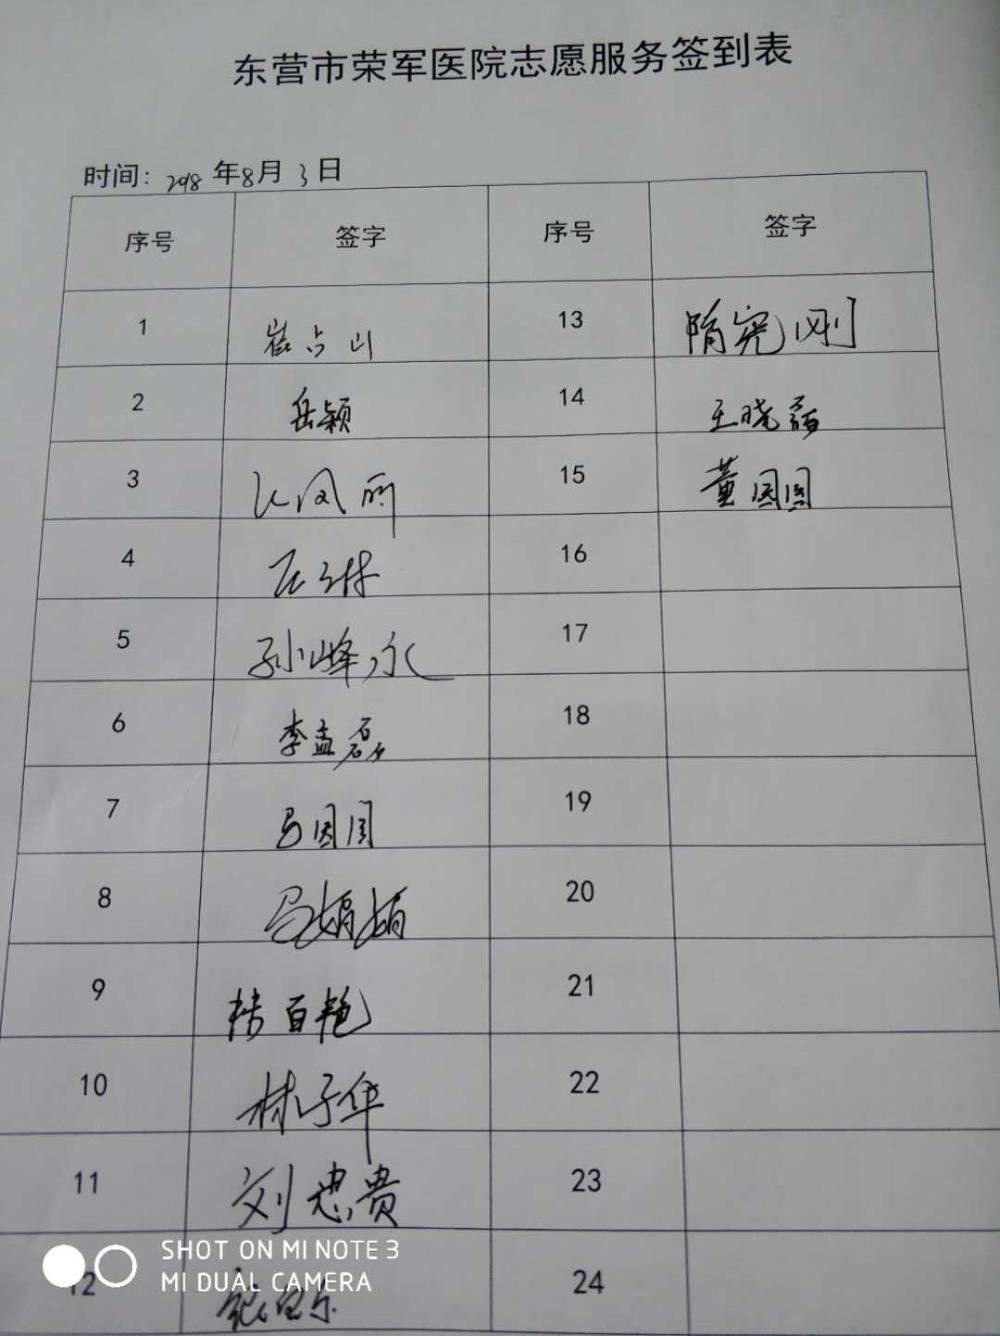 东营市荣军医院志愿服务签到表
时间：2018年8月3日
序号 签字 序号 签字
1 崔占山 13 隋宪刚
2 岳颖 14 王晓磊
3 15 董园园
4 16
5 孙峰永 17
6 李孟磊 18
7 马园园 19
8 马娟娟 20
9 韩百艳 21
10 林子华 22
11 刘忠贵 23
SHOT ON MI NOTE 3
MI DUAL CAMERA
12 24